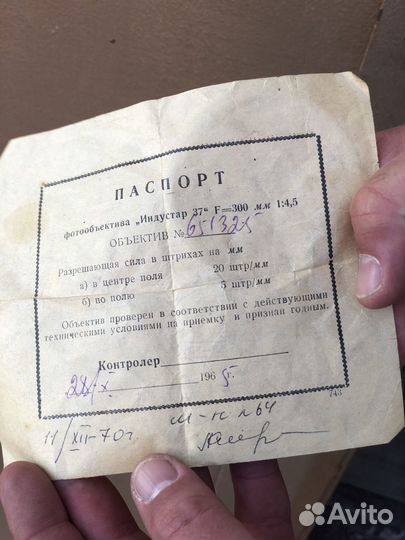 ПАСПОРТ
фотообъектива „Индустар 37“ F=300 мм 1:4,5
ОБЪЕКТИВ № 651325
Разрешающая сила в штрихах на мм
а) в центре поля 20 штр/мм
б) по полю 5 штр/мм
Объектив проверен в соответствии с действующими
техническими условиями на приемку и признан годным.
Контролер
28/X 1965 г.
743
11/XII-70 г. м-н № 64
Avito